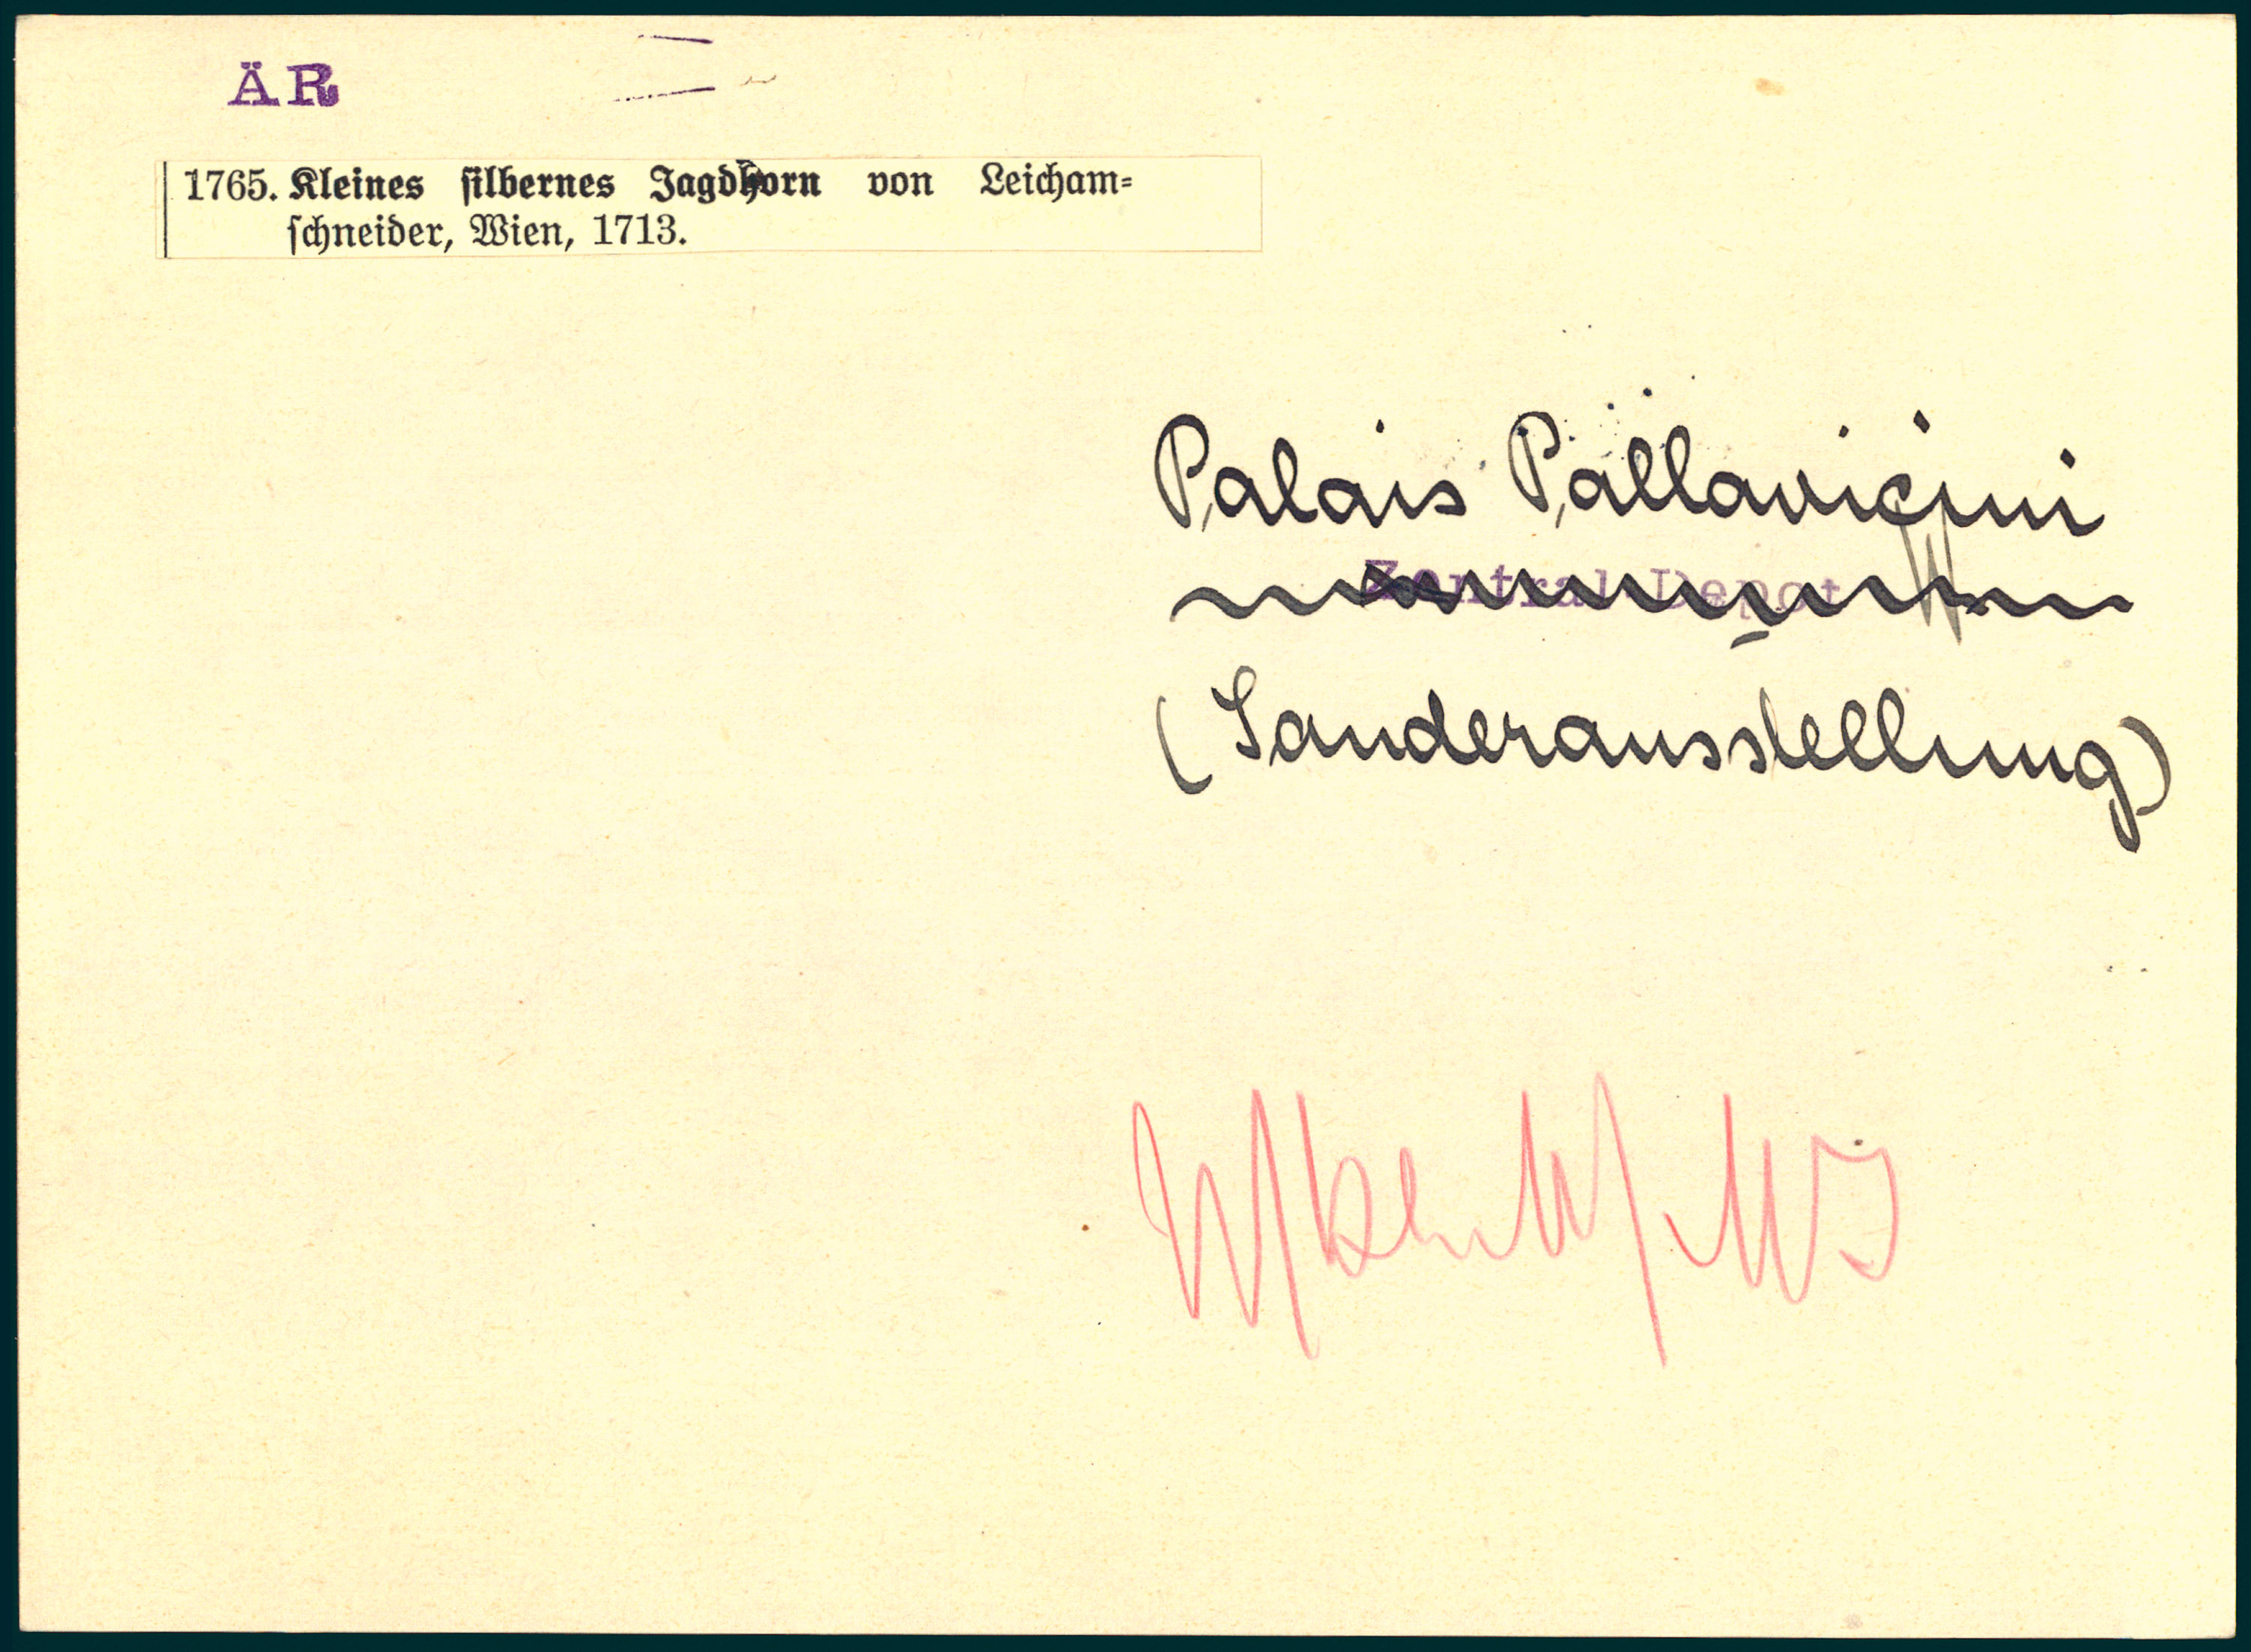 ÄR
1765. Kleines silbernes Jagdhorn von Leicham-
schneider, Wien, 1713.
Palais Pallavicini
Zentral Depot
(Sonderausstellung)